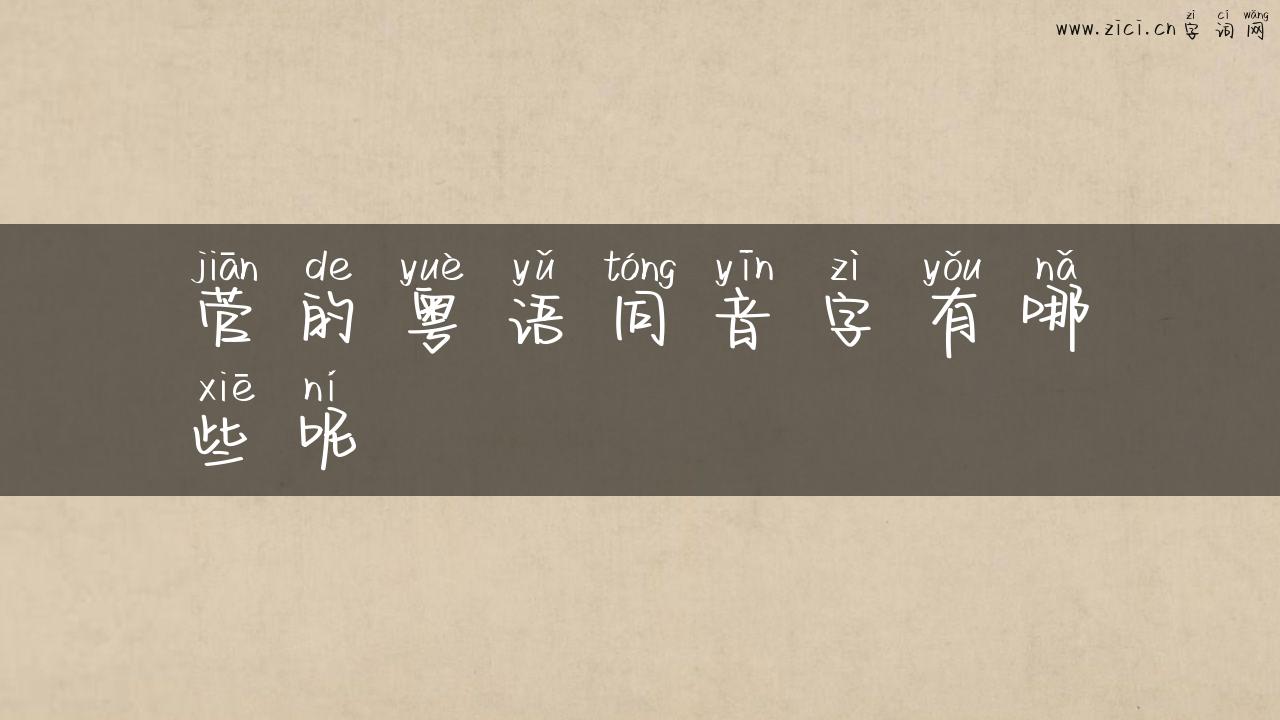 zì cí wǎng
www.zici.cn 字词网
jiān de yuè yǔ tóng yīn zì yǒu nǎ
菅的粤语同音字有哪
xiē ní
些呢